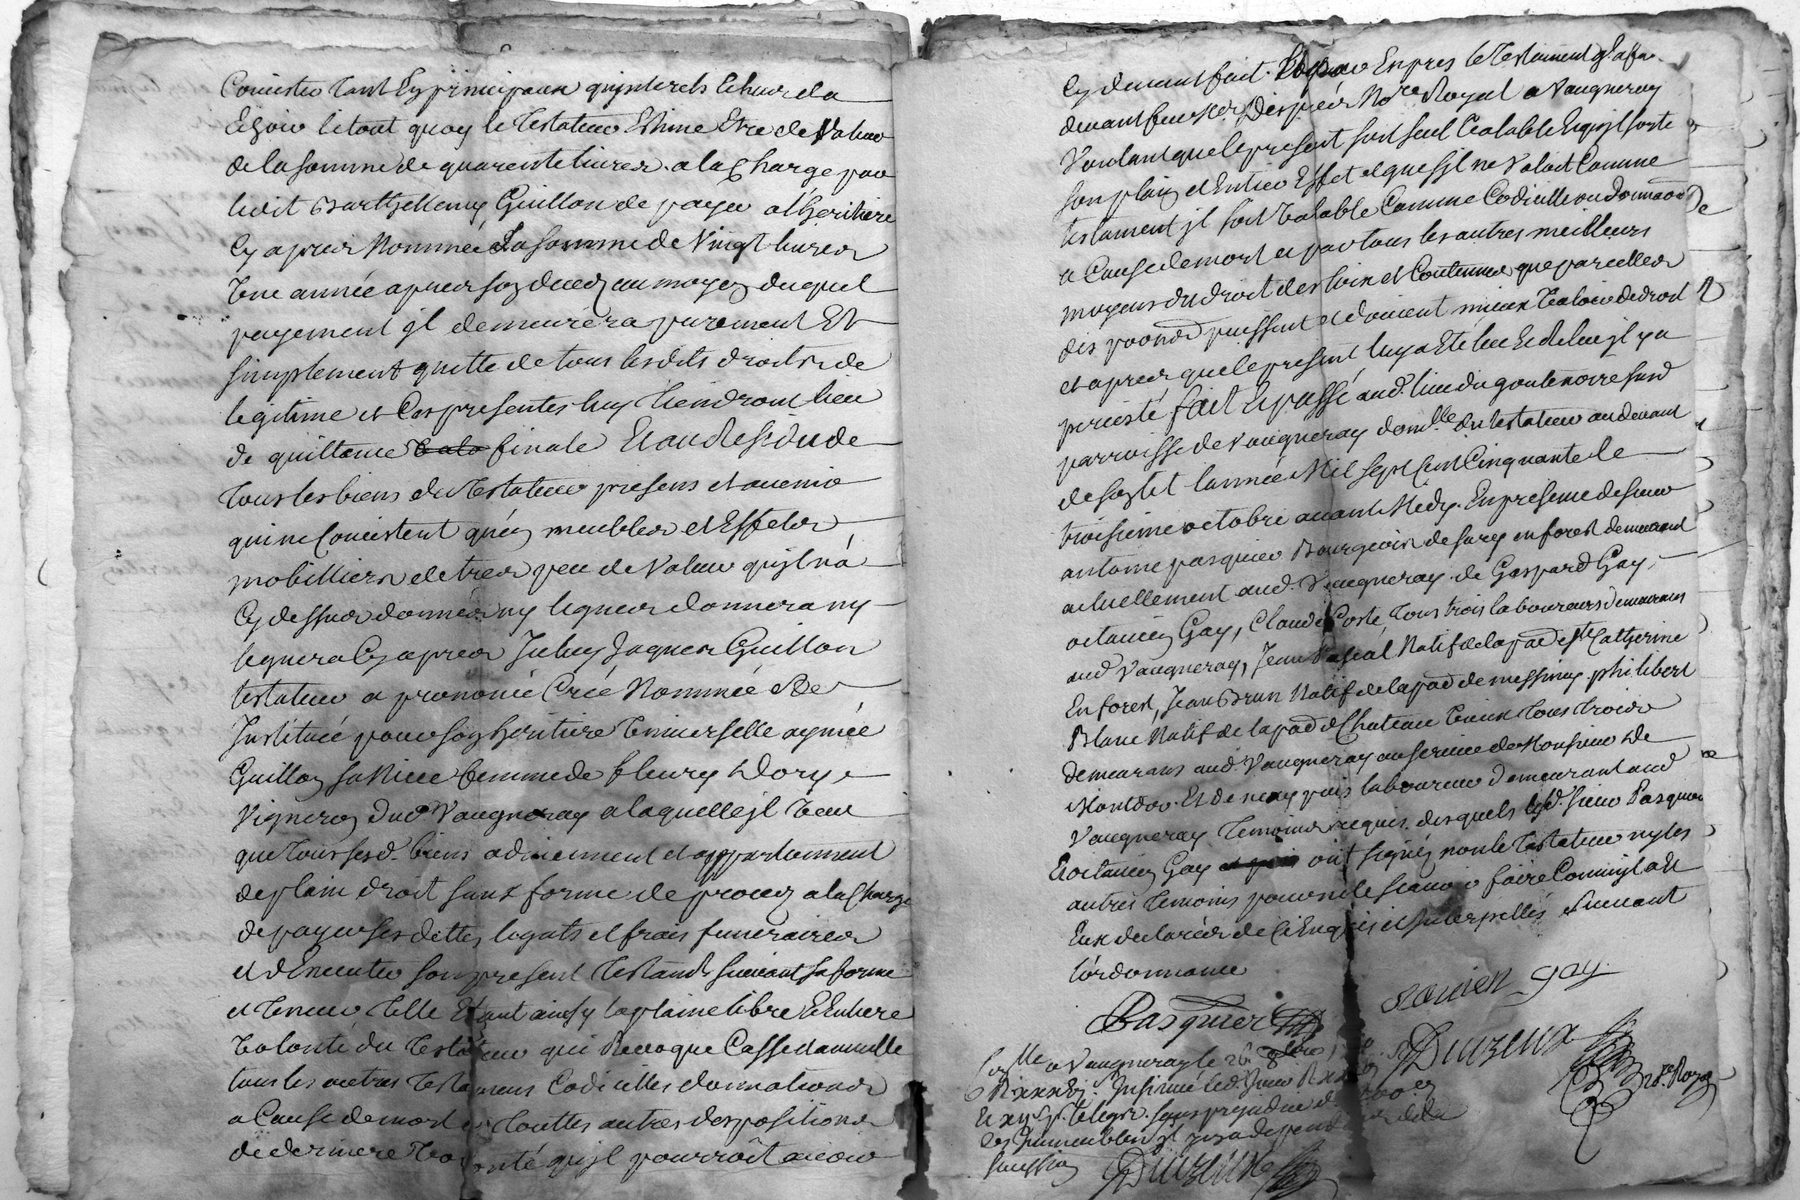 Concister tant En principaux qu'jnterets Echus ou a
Echoir le tout quoy le Testateur Estime Etre de Valeur
de la somme de quarente livres a la Charge par
ledit Barthellemy Guillon de payer a l'heritiere
Cy apres Nommée La somme de Vingt livres
Une année apres son deced au moyen duquel
payement jl demeurera purement Et
simplement quitte de tous lesdits droits de
legitime et Ces presentes luy Tiendront lieu
de quittance finale Et au Residu de
Tous les biens du Testateur presens et avenir
qui ne Concistent qu'en meubles et Effets
mobilliers et de tres peu de Valeur qu'jl n'a
Cy dessus donnés ny legues donnera ny
leguera Cy apres Jceluy Jaques Guillon
testateur a prononcé Créé Nommée Et
Jnstituée pour son heritiere Universelle aymée
Guillon sa Niece femme de fleury Dory
Vigneron dud Vaugneray a laquelle jl Veut
que Tous sesd. biens adviennent et appartiennent
de plain droit sans forme de procez a la Charge
de payer ses dettes legats et frais funeraires
et d'Executer son present Testamt suivant sa forme
et Teneur Telle Etant ainsy la plaine libre Et Entiere
Volonté du Testateur qui Revoque Casse et annulle
tous les autres Testamens Codicilles donnations
a Cause de mort et Touttes autres dispositions
de derniere Volonté qu'jl pourroit avoir
Cy devant fait Expres le Testament qu'il a fait
devant feu Me Despres Nore Royal a Vaugneray
Voulant que le present soit seul Valable Et qu'jl sorte
son plain et Entier Effet et que s'jl ne Valoit Comme
testament jl soit Valable Comme Codicille ou donnaôn
a Cause de mort et par tous les autres meilleurs
moyens du droit des loix et Coutumes que pareilles
disposôns puissent et doivent mieux Valoir de droit
et apres que le present luy a Eté lue Et Relue jl y a
percisté fait Et passé aud. lieu du goutenoire susd
parroisse de Vaugneray domille du testateur au devant
de son lit l'année Mil Sept Cent Cinquante le
troisieme octobre avant Midy. En presence de sieur
antoine pasquier Bourgeois de Sury en forest demeurant
actuellement aud. Vaugneray de Gaspard Gay,
octavien Gay, Claude Coste Tous trois laboureurs demeurans
aud Vaugneray, Jean Natif de la psse de Ste Catherine
En forest, Jean Brun Natif de la psse de messimy philibert
Blanc Natif de la psse de Chateau Vieux Tous Trois
demeurans aud. Vaugneray au service de Monsieur de
Et de laboureur demeurant aud
Vaugneray Temoins requis. desquels led. sieur Pasquier
Et octavien Gay ont signés non le Testateur ny les
autres Temoins pour ne le scavoir faire Comme jls ont
Eux declarés de Ce Enquis et Interpellés suivant
l'ordonnance
Pasquier octavien Gay
a Vaugneray le 26 8bre
sans prejudice